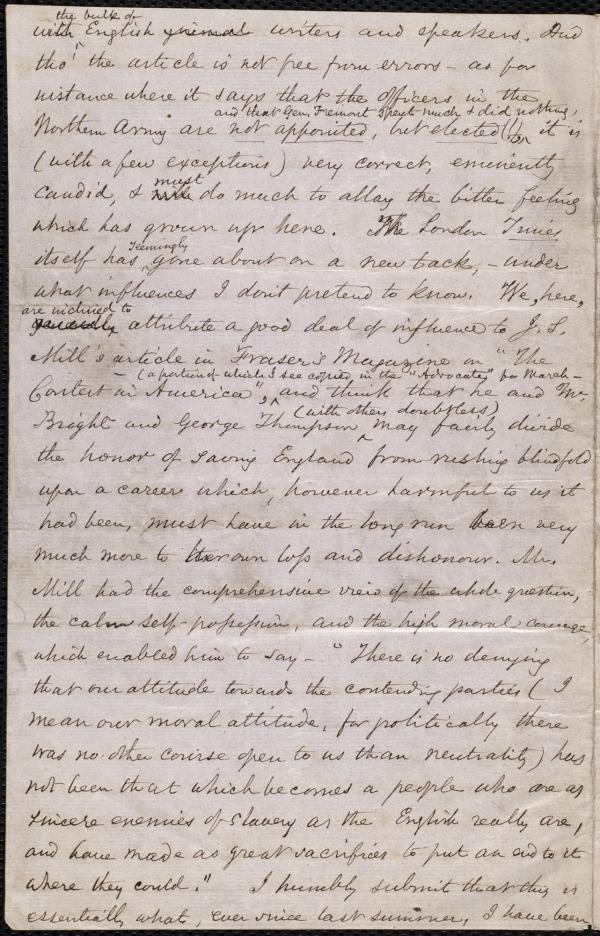 the bulk of
with English writers and speakers. And
tho' the article is not free from errors - as for
instance where it says that the Officers in the
and that Gen. Fremont spent much & did nothing,
Northern Army are not appointed, but elected!! it is
(with a few exceptions) very correct, eminently
must
candid, & will do much to allay the bitter feeling
which has grown up here. The London Times
seemingly
itself has, gone about on a new tack, - under
what influences I don't pretend to know. We, here,
are inclined to
generally attribute a good deal of influence to J. S.
Mill's article in Fraser's Magazine on "The
- (a portion of which I see copied in the "Advocate" for March -
Contest in America", and think that he and Mr.
(with others doubtless)
Bright and George Thompson may fairly divide
the honor of saving England from rushing blindfold
upon a career which, however harmful to us it
had been, must have in the long run been very
much more to her own loss and dishonour. Mr.
Mill had the comprehensive view of the whole question,
the calm self-possession, and the high moral courage
which enabled him to say - "There is no denying
that our attitude towards the contending parties (I
mean our moral attitude, for politically there
was no other course open to us than neutrality) has
not been that which becomes a people who are as
sincere enemies of slavery as the English really are,
and have made as great sacrifices to put an end to it
where they could." I humbly submit that this is
essentially what, ever since last summer, I have been